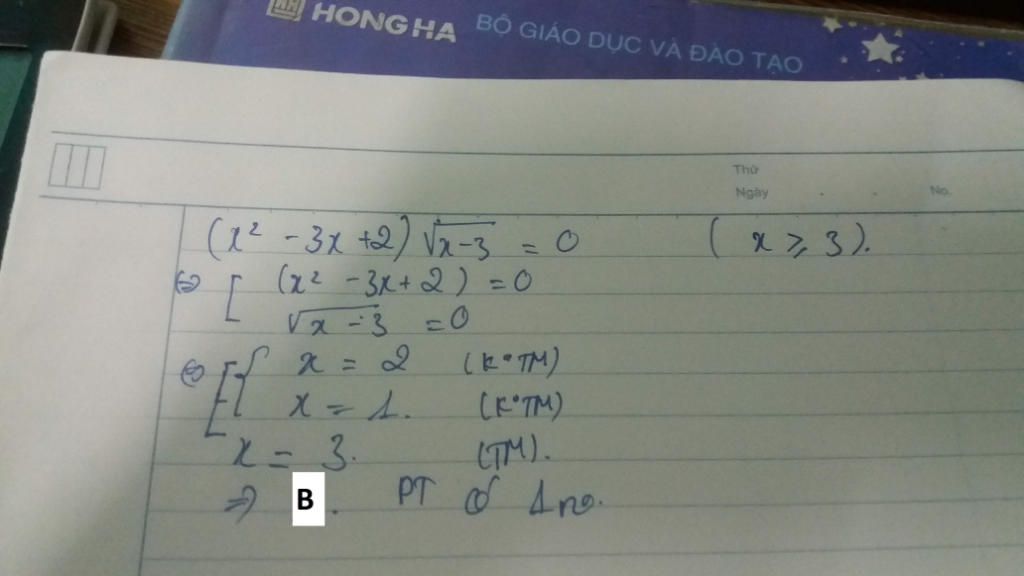 HONG HA BỘ GIÁO DỤC VÀ ĐÀO TẠO
Thứ
Ngày . . No.
(x² - 3x + 2) √(x-3) = 0 ( x ⩾ 3 ).
⇔ [ (x² - 3x + 2) = 0
√(x - 3) = 0
⇔ [ { x = 2 (K°TM)
x = 1. (K°TM)
x = 3. (TM).
⇒ B . PT có 1 no.